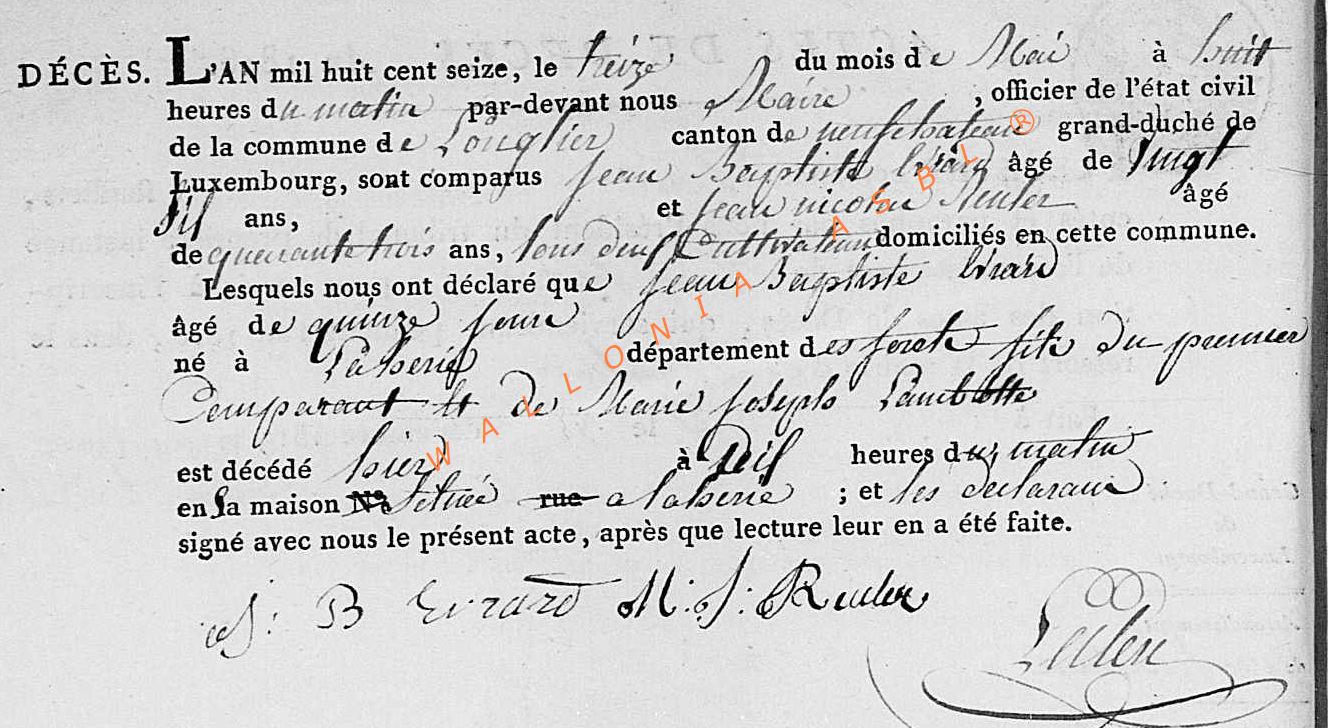 DÉCÈS. L'AN mil huit cent seize, le treize du mois de Mai à huit
heures du matin par-devant nous Maire , officier de l'état civil
de la commune de Longlier canton de neufchateau grand-duché de
Luxembourg, sont comparus Jean Baptiste Evrard âgé de vingt
six ans, et Jean nicolas Reuler âgé
de quarante trois ans, tous deux Cultivateurs domiciliés en cette commune.
Lesquels nous ont déclaré que Jean Baptiste Evrard
âgé de quinze jours
né à Laherie département des forets fils du premier
Comparant et de Marie Joseph Lambotte
est décédé hier à dix heures du matin
en sa maison No située rue a laherie ; et les declarans
signé avec nous le présent acte, après que lecture leur en a été faite.
J: B Evrard M: J: Reuler
WALLONIA ASBL ®